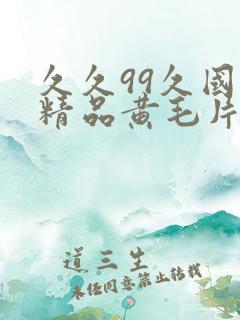 久久99久國
精品黄毛片
道三生
未经同意禁止转载